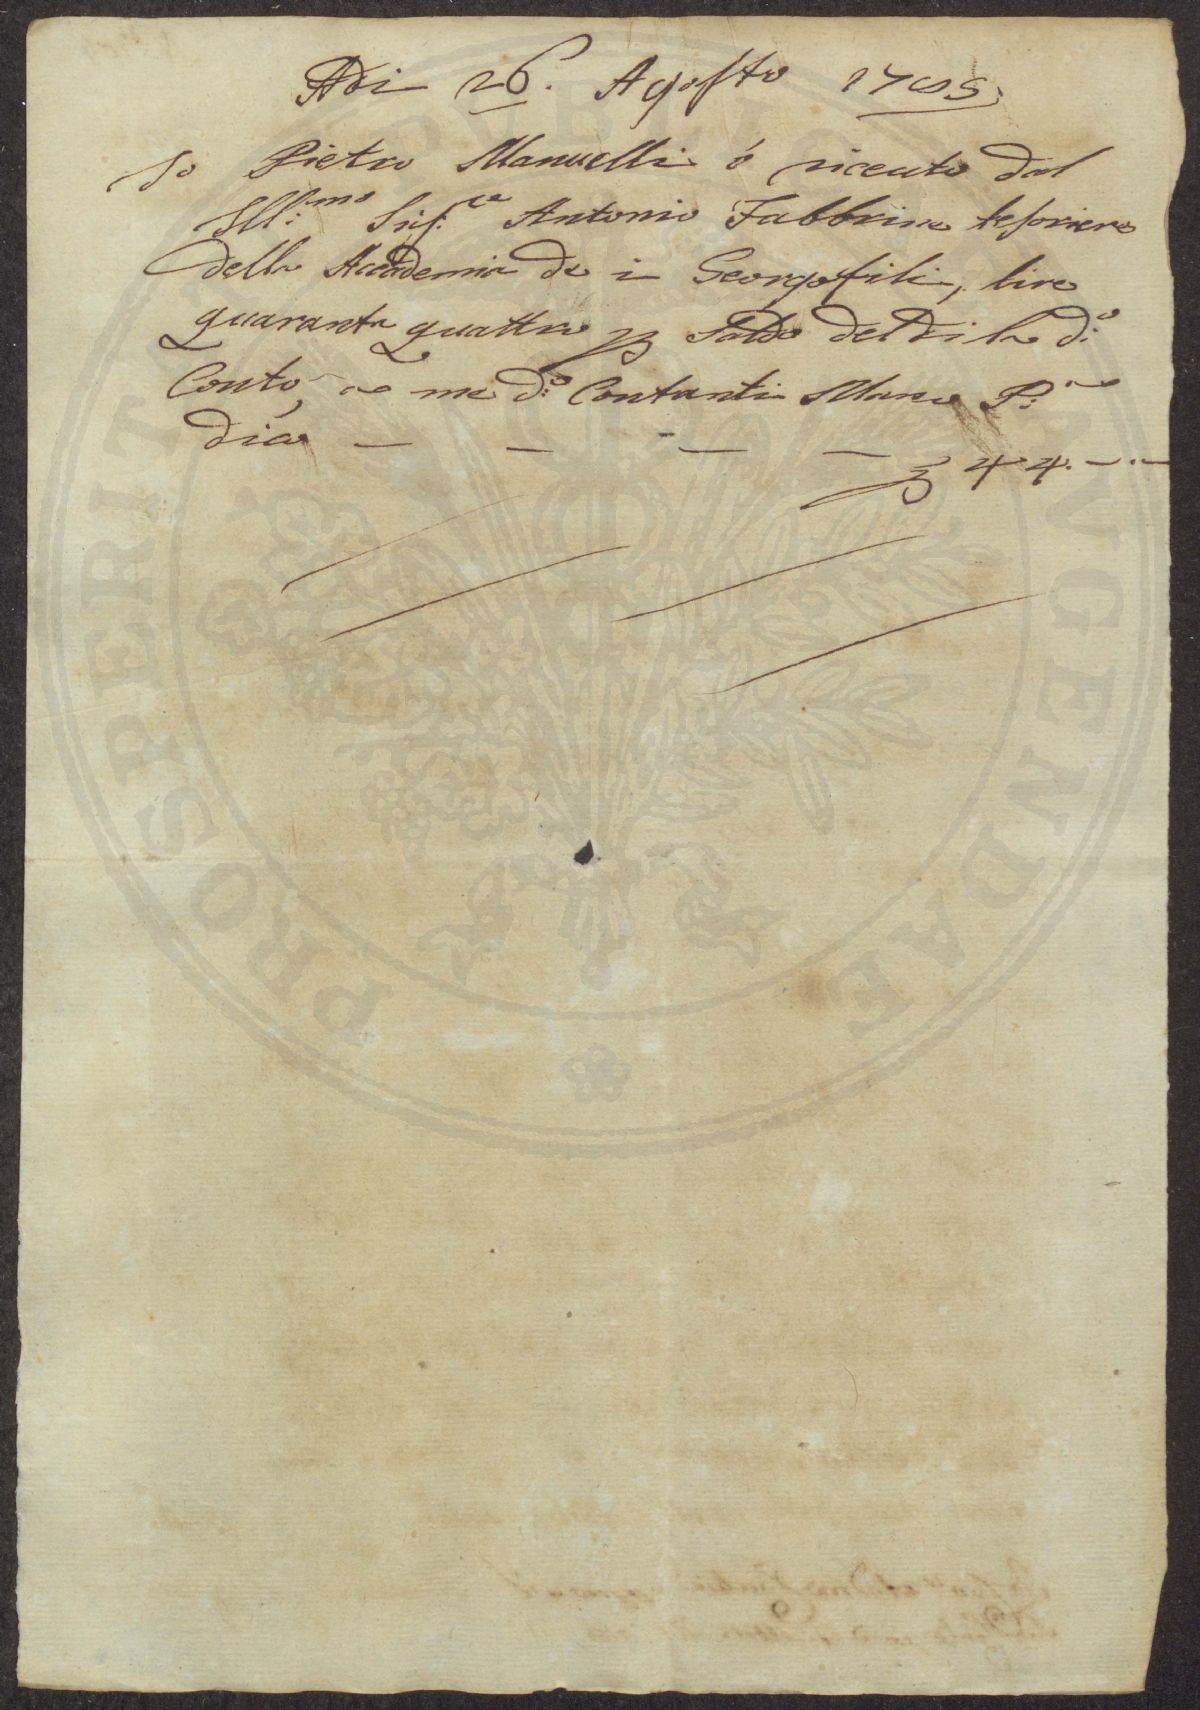 Adi 26. Agosto 1785
Io Pietro Manuelli ò riceuto dal
Ill:mo Sig:re Antonio Fabbrine tesoriere
della Accademia de i Georgofili, lire
quaranta quattro p Saldo del di la d:o
Conto, a me d:o Contanti Mano P:a
dico — — — — £ 44.-.-
PROSPERITATI PUBLICAE AUGENDAE